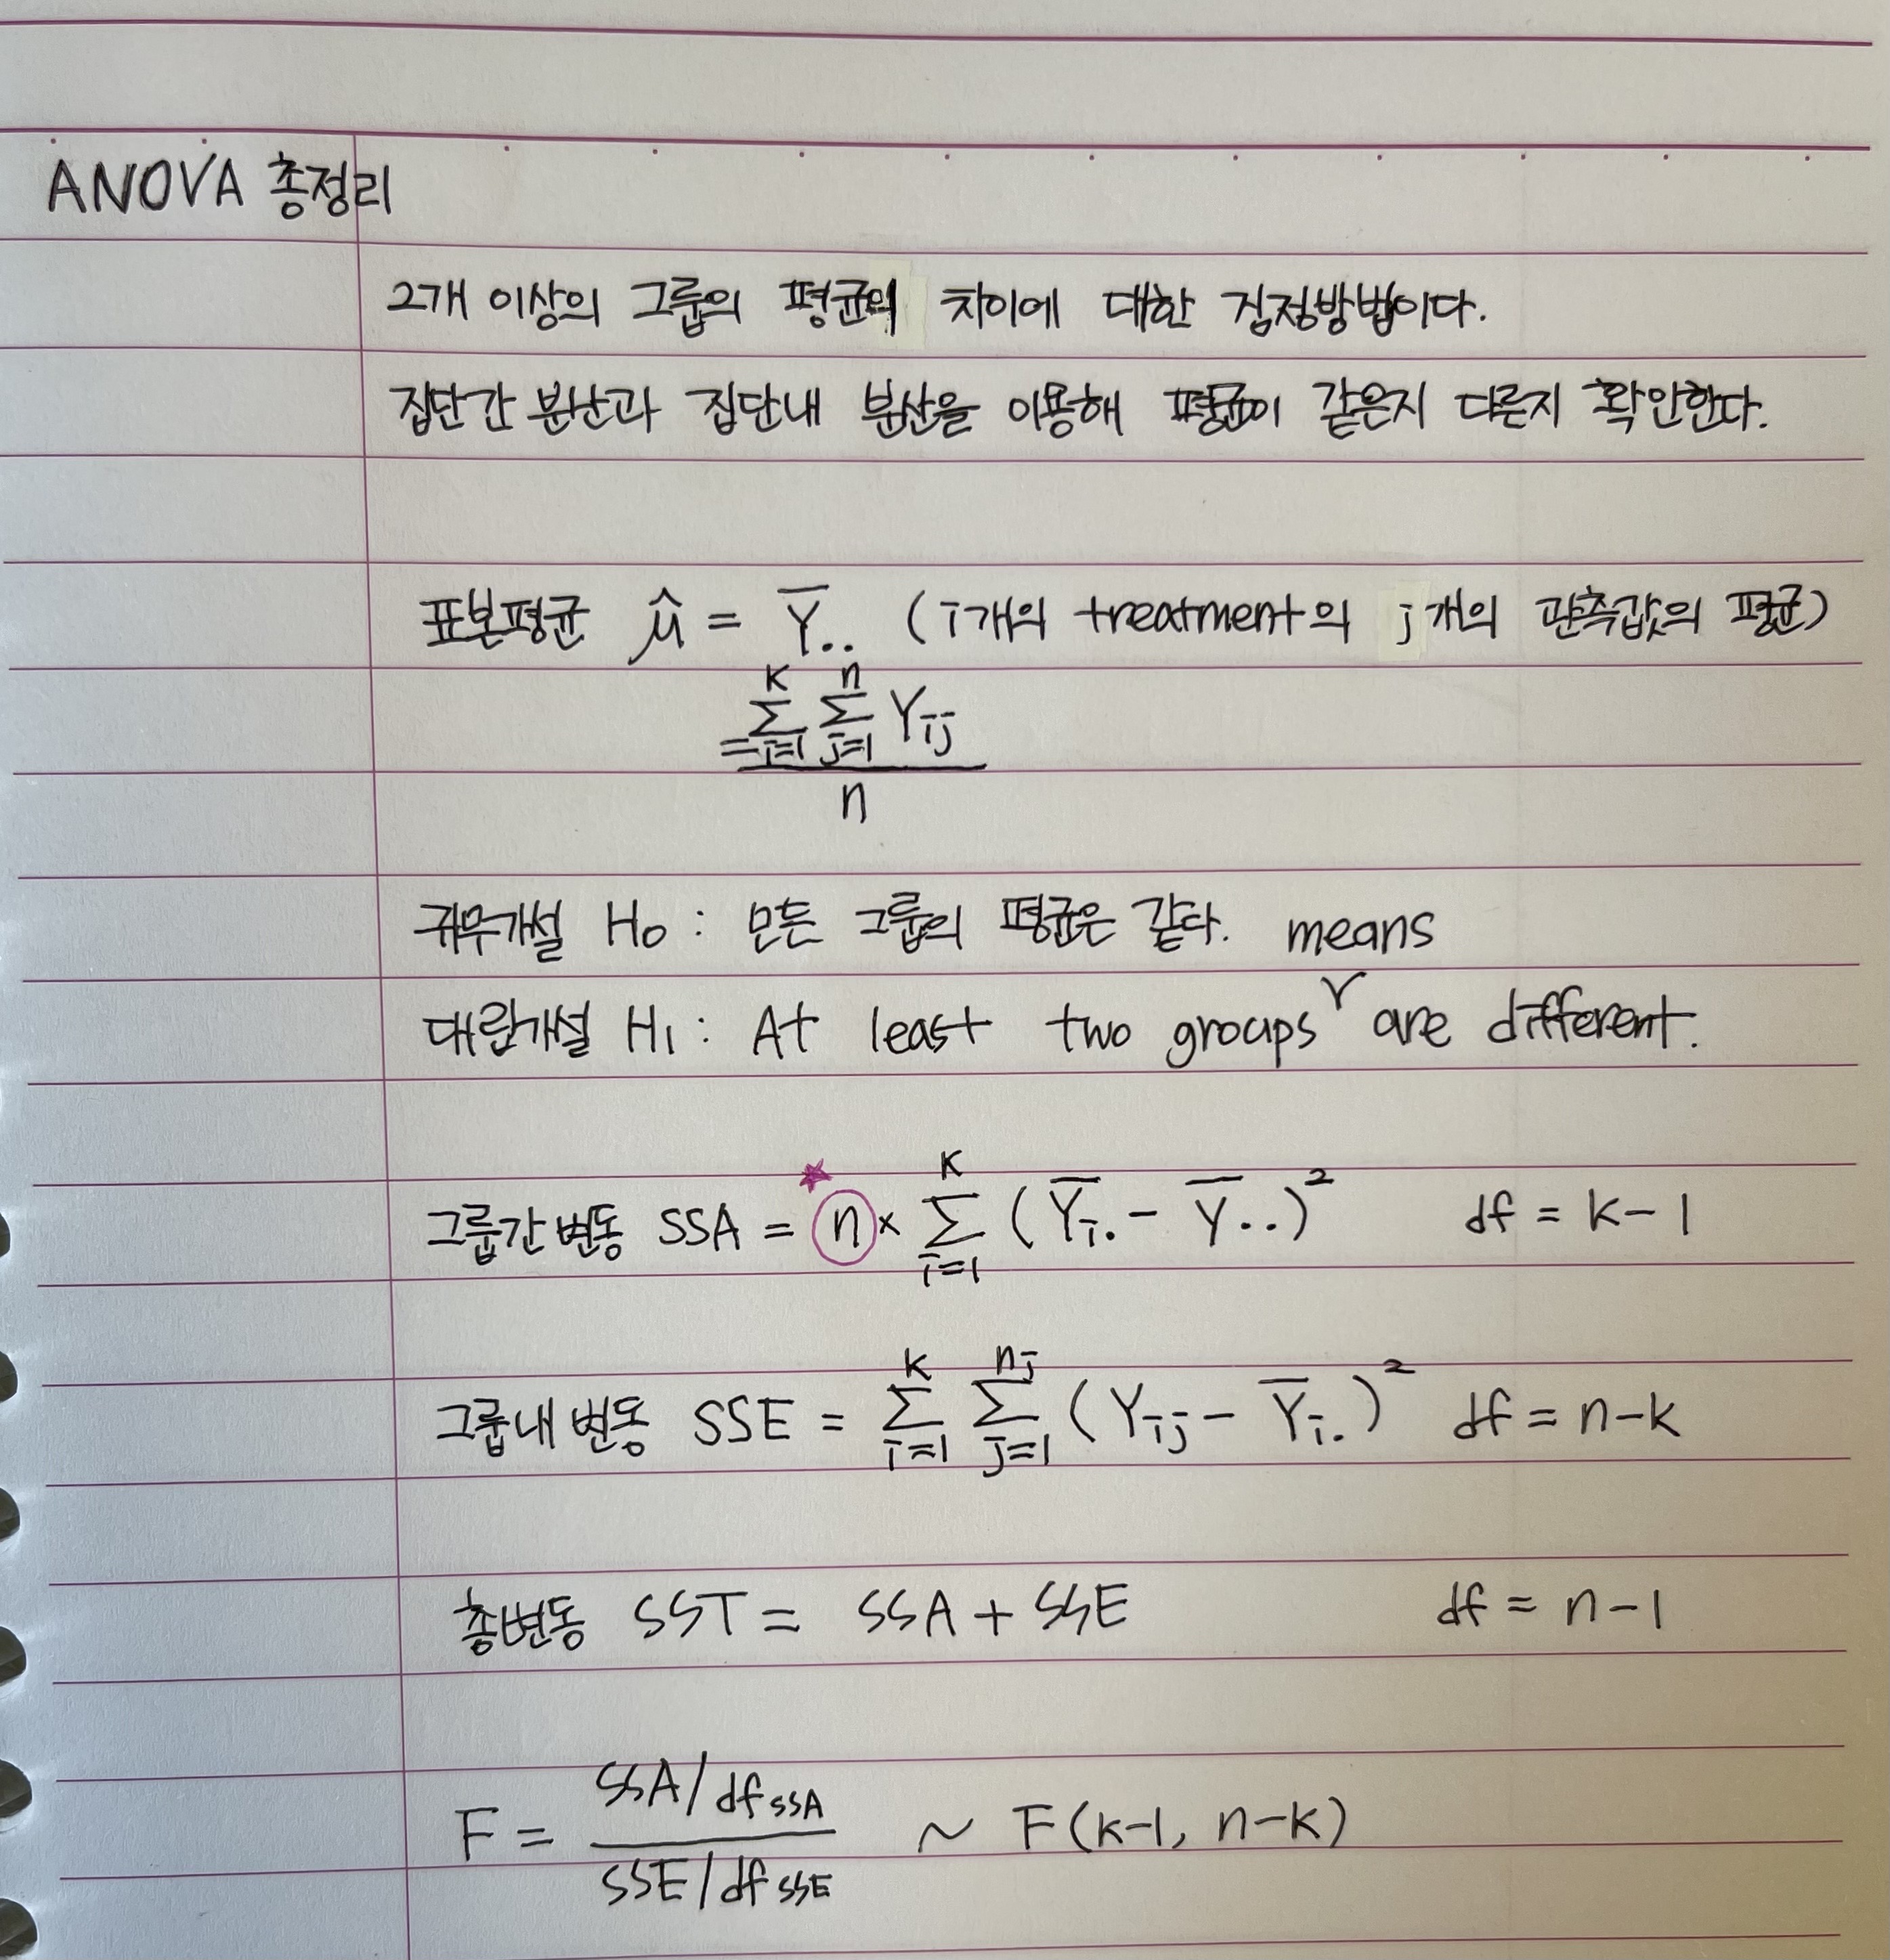 ANOVA 총정리
2개 이상의 그룹의 평균의 차이에 대한 검정방법이다.
집단간 분산과 집단내 분산을 이용해 평균이 같은지 다른지 확인한다.
표본평균 μ̂ = Ȳ.. (i개의 treatment의 j개의 관측값의 평균)
= Σ_{i=1}^{k} Σ_{j=1}^{n} Y_{ij} / n
귀무가설 H₀ : 모든 그룹의 평균은 같다.
대립가설 H₁ : At least two groups means are different.
그룹간 변동 SSA = n × Σ_{i=1}^{k} (Ȳ_{i.} - Ȳ..)² df = k-1
그룹내 변동 SSE = Σ_{i=1}^{k} Σ_{j=1}^{nj} (Y_{ij} - Ȳ_{i.})² df = n-k
총변동 SST = SSA + SSE df = n-1
F = SSA/df_{SSA} / SSE/df_{SSE} ~ F(k-1, n-k)